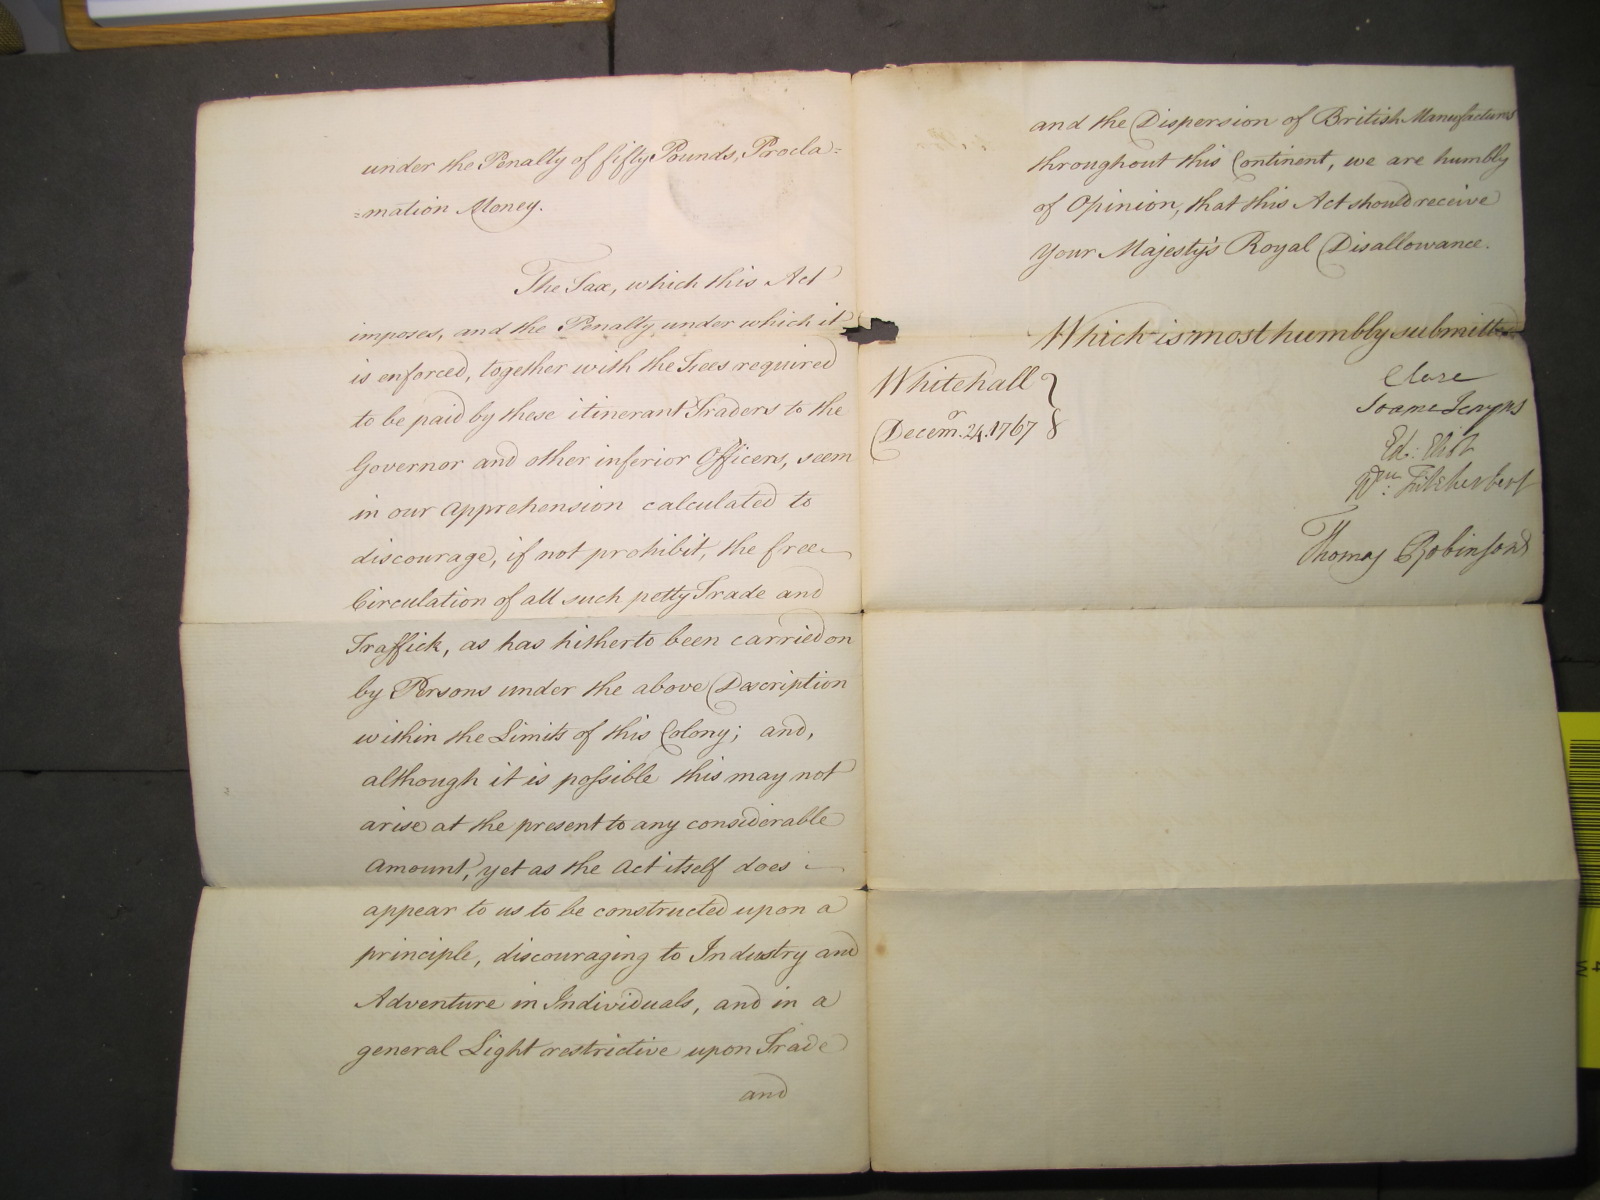 under the Penalty of fifty Pounds, Procla=
=mation Money.
The Tax, which this Act
imposes, and the Penalty under which it
is enforced, together with the Fees required
to be paid by these itinerant Traders to the
Governor and other inferior Officers, seem
in our Apprehension calculated to
discourage, if not prohibit, the free
Circulation of all such petty Trade and
Traffick, as has hitherto been carried on
by Persons under the above Description
within the Limits of this Colony; and,
although it is possible this may not
arise at the present to any considerable
Amount, yet as the Act itself does
appear to us to be constructed upon a
principle, discouraging to Industry and
Adventure in Individuals, and in a
general Light restrictive upon Trade
and
and the Dispersion of British Manufactures
throughout this Continent, we are humbly
of Opinion, that this Act should receive
Your Majesty's Royal Disallowance.
Which is most humbly submitted
Whitehall
Decemr. 24. 1767
Clare
Soame Jenyns
Ed: Eliot
Wm: Fitzherbert
Thomas Robinson